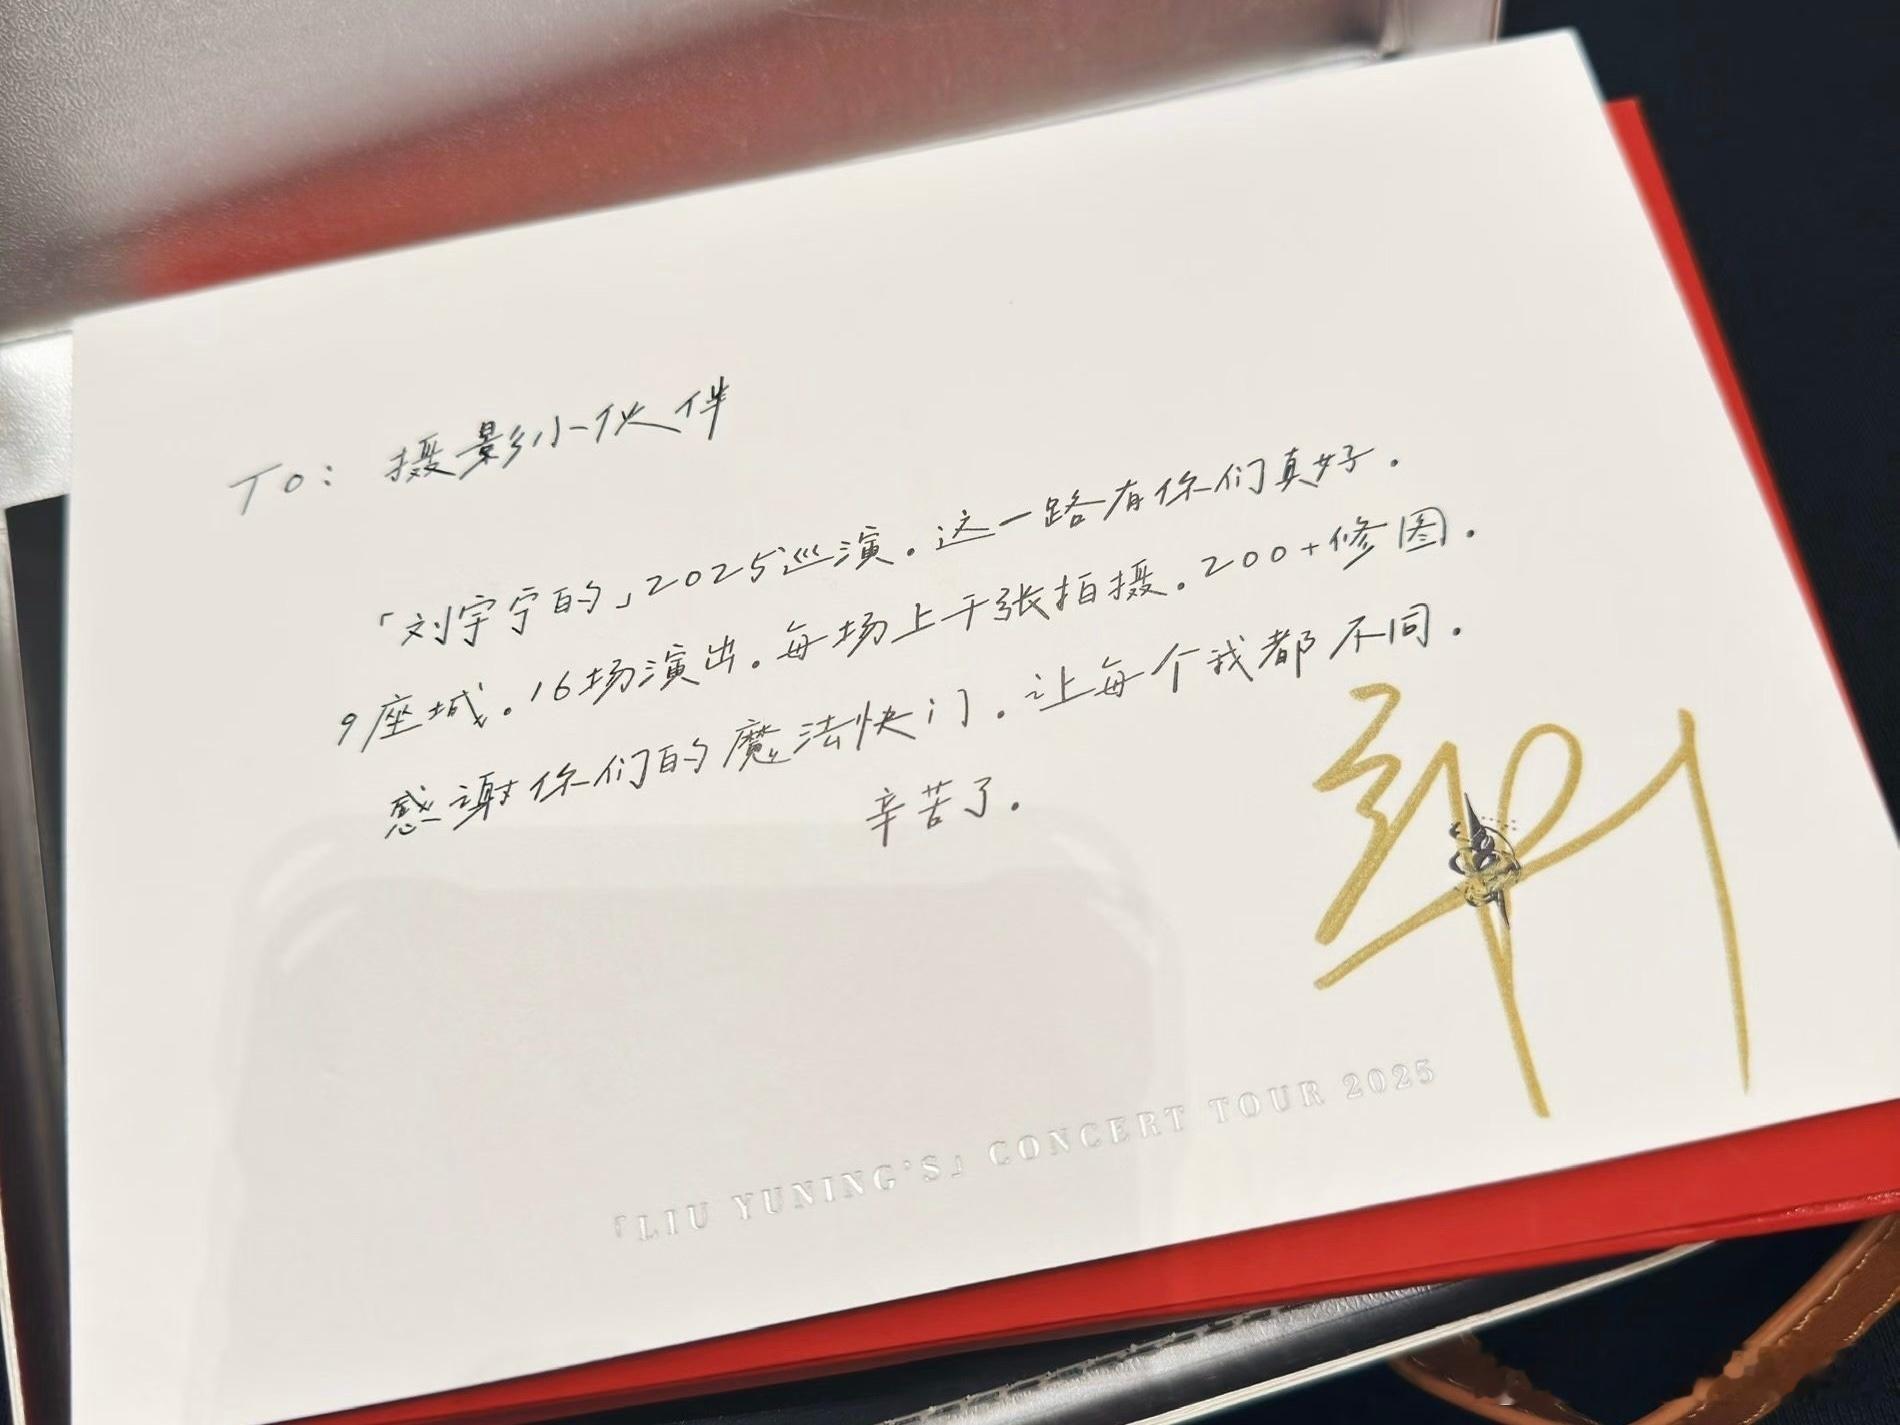 To: 摄影小伙伴
「刘宇宁的」2025巡演.这一路有你们真好.
9座城.16场演出.每场上千张拍摄.200+修图.
感谢你们的魔法快门.让每个我都不同.
辛苦了.
「LIU YUNING'S」 CONCERT TOUR 2025